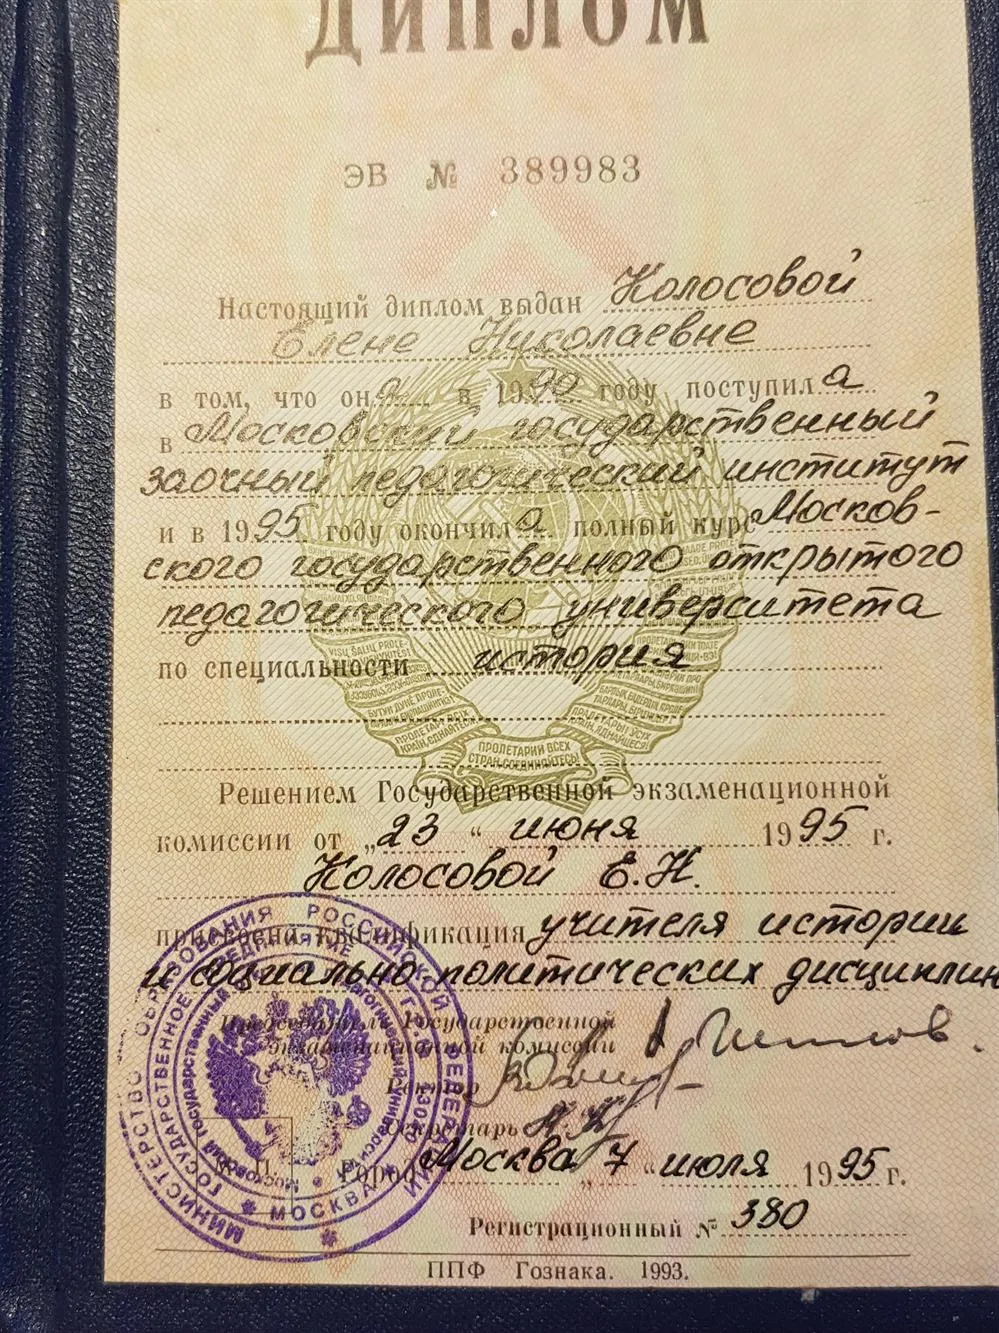 ДИПЛОМ
ЭВ № 389983
Настоящий диплом выдан Колосовой
Елене Николаевне
в том, что она в 1992 году поступила
в Московский государственный
заочный педагогический институт
и в 1995 году окончила полный курс Москов-
ского государственного открытого
педагогического университета
по специальности история
ПРОЛЕТАРИИ ВСЕХ
СТРАН, СОЕДИНЯЙТЕСЬ!
Решением Государственной экзаменационной
комиссии от „23“ июня 1995 г.
Колосовой Е.Н.
присвоена квалификация учителя истории
и социально политических дисциплин
Председатель Государственной
экзаменационной комиссии
Ректор
Секретарь
Город Москва „7“ июля 1995 г.
Регистрационный № 380
МИНИСТЕРСТВО ОБРАЗОВАНИЯ РОССИЙСКОЙ ФЕДЕРАЦИИ
МОСКВА
М. П.
ППФ Гознака. 1993.